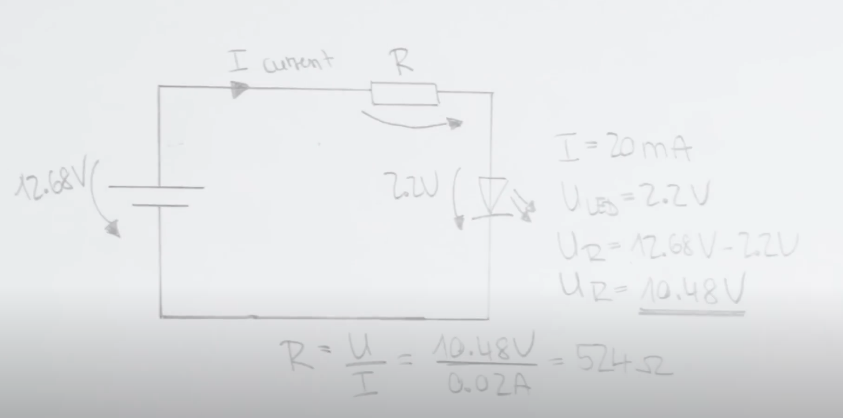 I current
R
12.68V
2.2V
I = 20mA
U LED = 2.2V
UR = 12.68V - 2.2V
UR = 10.48V
R = U/I = 10.48V/0.02A = 524Ω